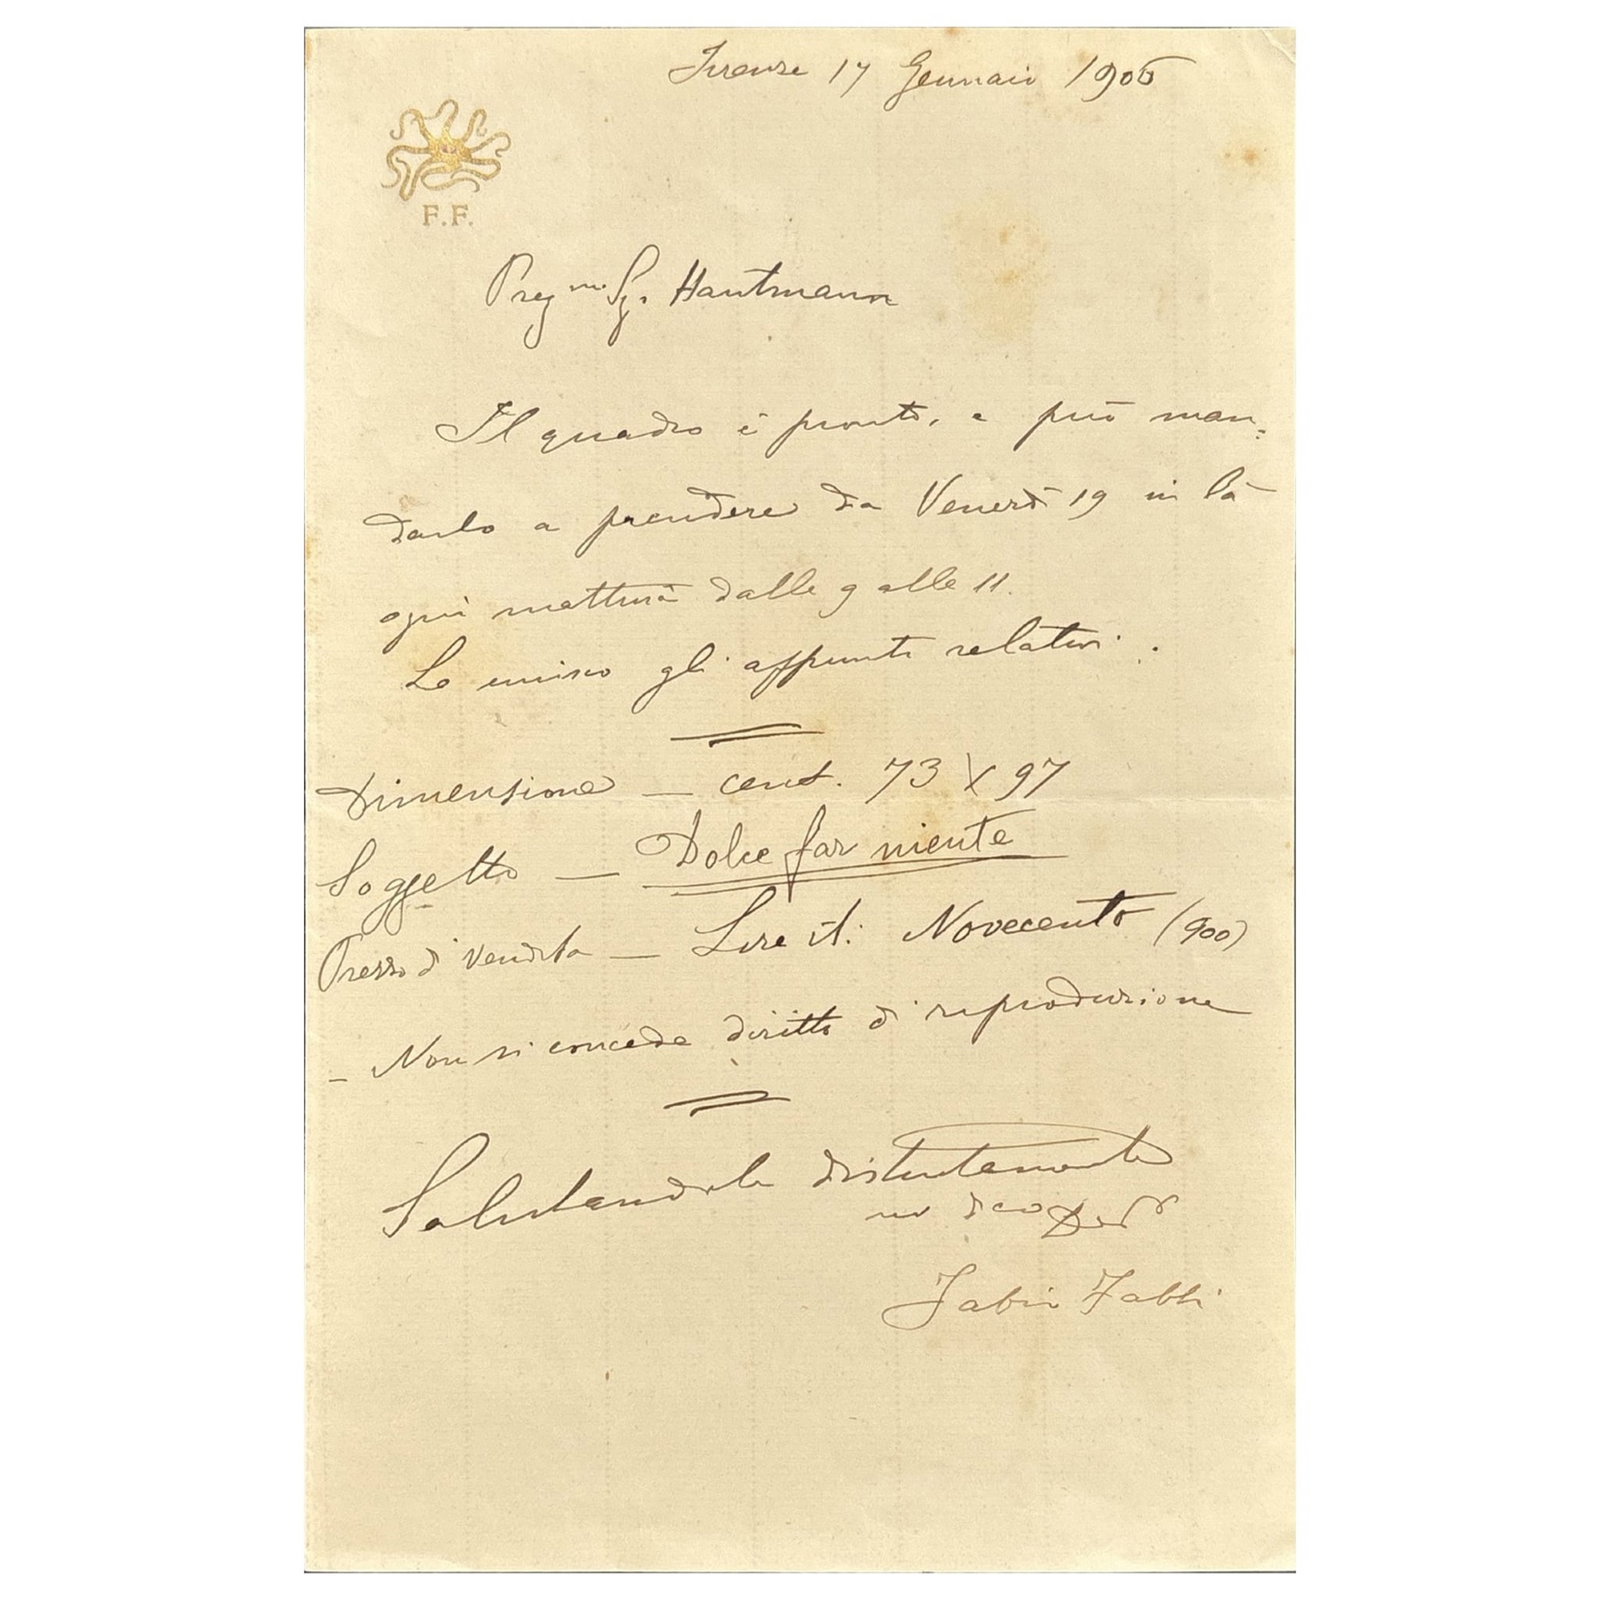 Firenze 17 Gennaio 1906
F.F.
Preg.mo Sg. Hautmann
Il quadro è pronto, e può man=
darlo a prendere da Venerdì 19 in là
ogni mattina dalle 9 alle 11.
Le unisco gli appunti relativi.
Dimensione — cent. 73 X 97
Soggetto — Dolce far niente
Prezzo di vendita — Lire it: Novecento (900)
- Non si concede diritto di riproduzione
Salutandola distintamente
Fabio Fabbi